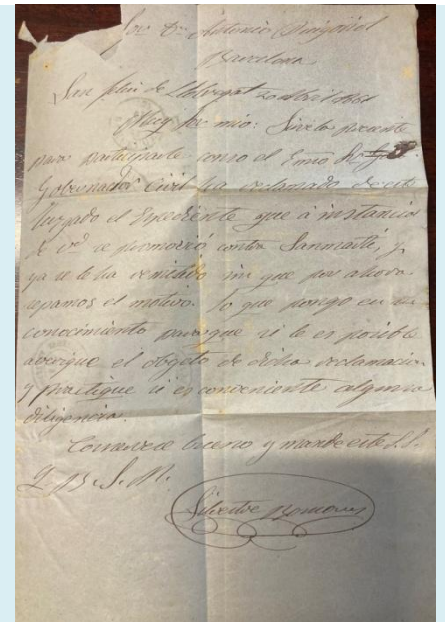 Sor Dn Antonio
Barcelona
Sn Feliu de Llobregat 20 Abril 1861
Muy Sor mio: Sirve la presente
para participarle como el Exmo Sr
Gobernador Civil ha reclamado de este
Juzgado el Espediente que á instancia
de vd se promovió contra Sanmartí, y
ya se le ha remitido sin que por ahora
sepamos el motivo. lo que pongo en su
conocimiento para que si le es posible
averigue el objeto de dicha reclamacion
y practique si es conveniente alguna
diligencia.
Conservese bueno y mande este S. S.
Q. B. S. M.
Silvestre